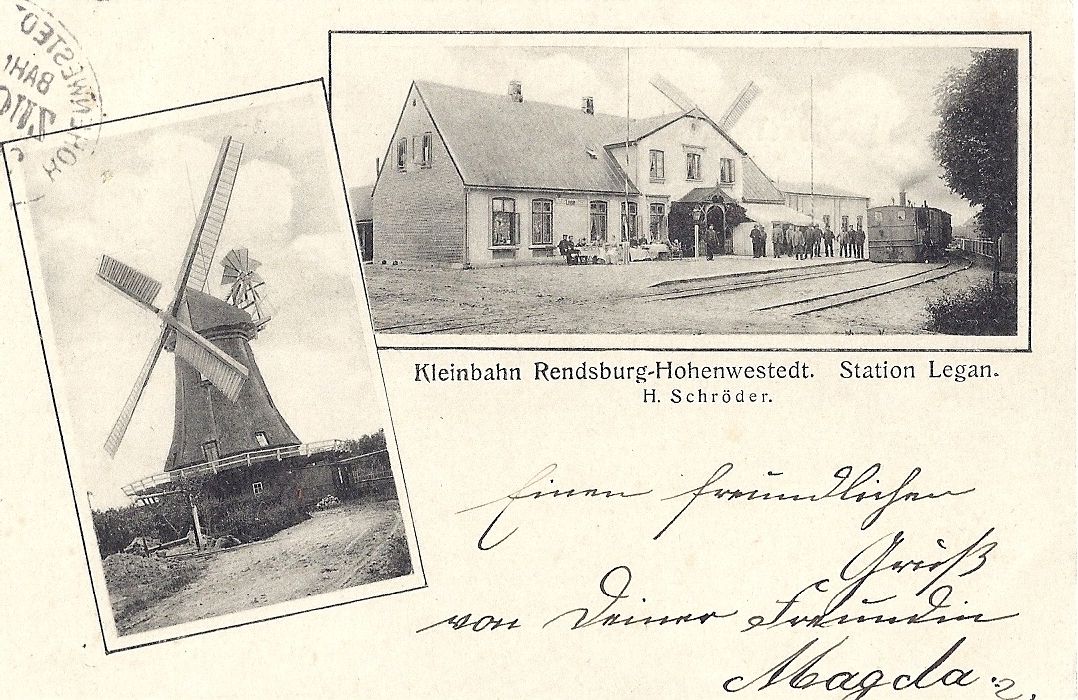 HOHENWESTEDT
BAH
Kleinbahn Rendsburg-Hohenwestedt. Station Legan.
H. Schröder.
Einen freundlichen
Gruß
von Deiner Freundin
Magda.